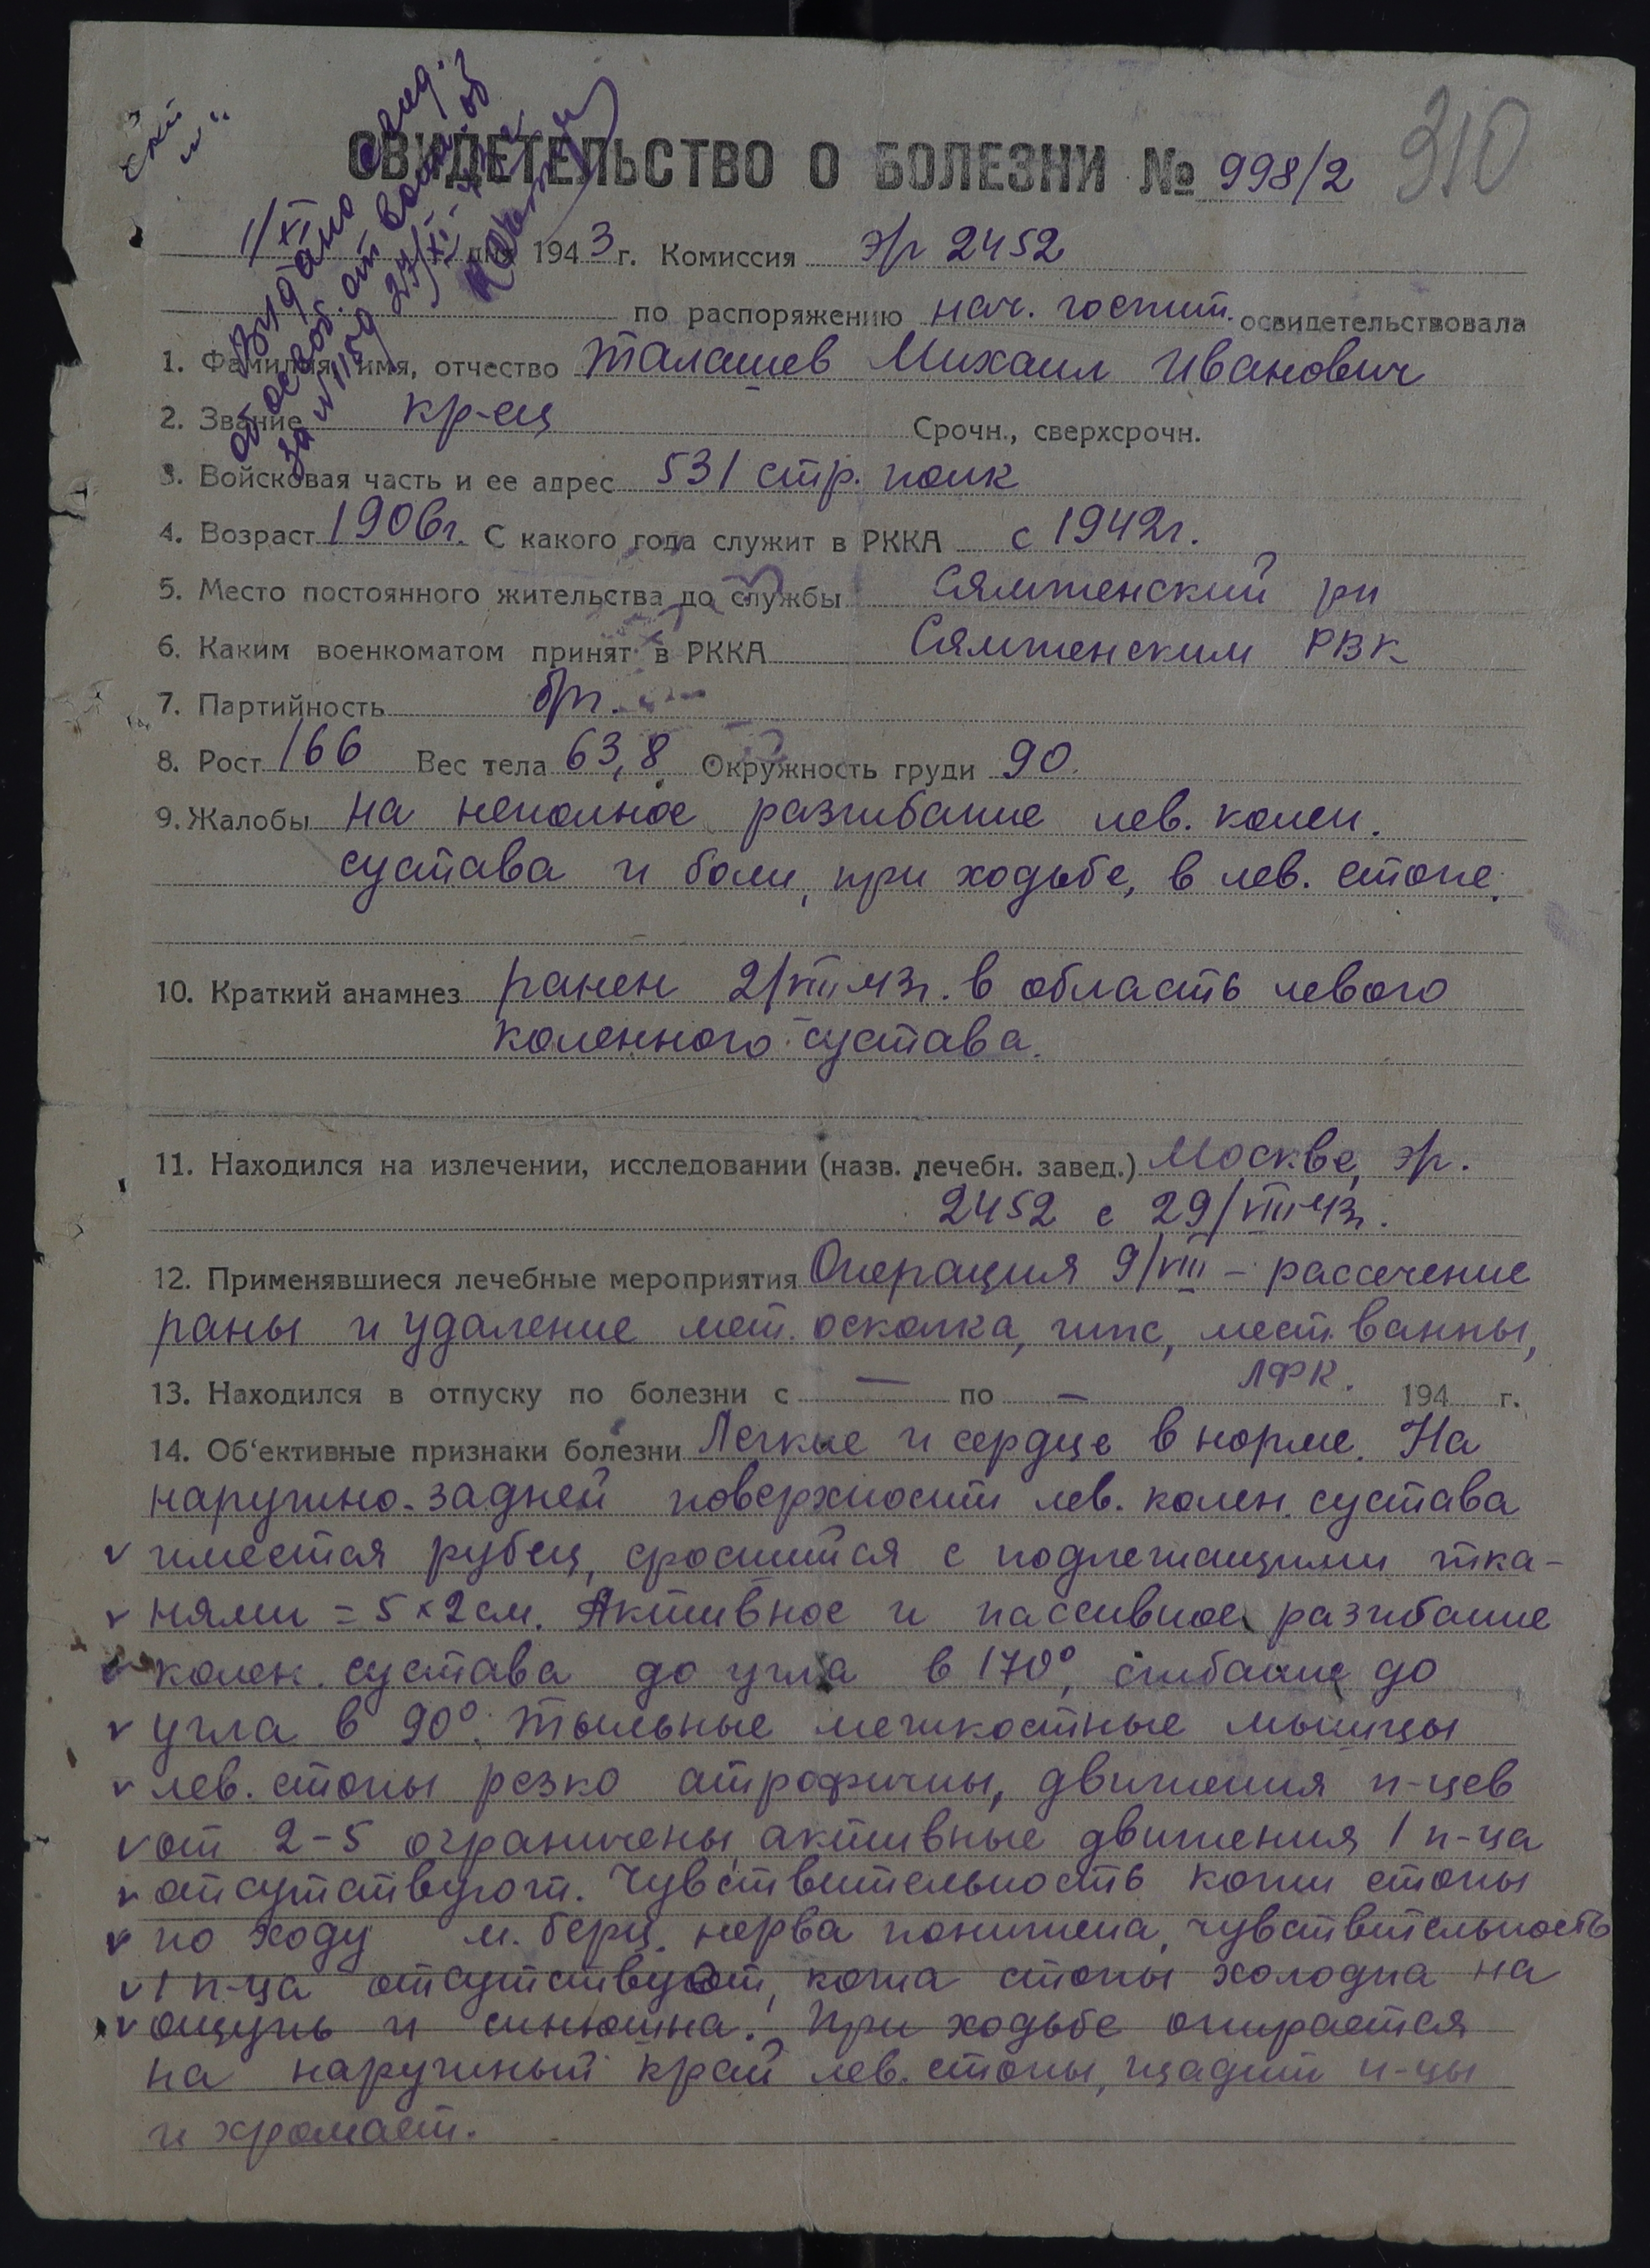 310
СВИДЕТЕЛЬСТВО О БОЛЕЗНИ № 998/2
1/XI дня 1943 г. Комиссия эг 2452
по распоряжению нач. госпит. освидетельствовала
1. Фамилия, имя, отчество Талашев Михаил Иванович
2. Звание кр-ец Срочн., сверхсрочн.
3. Войсковая часть и ее адрес 531 стр. полк
4. Возраст 1906г. С какого года служит в РККА с 1942г.
5. Место постоянного жительства до службы Сямженский рн
6. Каким военкоматом принят в РККА Сямженским РВК
7. Партийность бп.
8. Рост 166 Вес тела 63,8 Окружность груди 90.
9. Жалобы на неполное разгибание лев. колен.
сустава и боли, при ходьбе, в лев. стопе.
10. Краткий анамнез ранен 2/VIII 43г. в область левого
коленного сустава.
11. Находился на излечении, исследовании (назв. лечебн. завед.) Москве, эг.
2452 с 29/VIII 43г.
12. Применявшиеся лечебные мероприятия Операция 9/VIII – рассечение
раны и удаление мет. осколка, гипс, мест. ванны,
ЛФК.
13. Находился в отпуску по болезни с — по — 194 г.
14. Об'ективные признаки болезни Легкие и сердце в норме. На
наружно-задней поверхности лев. колен. сустава
имеется рубец, сросшийся с подлежащими тка-
нями = 5 × 2 см. Активное и пассивное разгибание
колен. сустава до угла в 170°, сгибание до
угла в 90°. Тыльные межкостные мышцы
лев. стопы резко атрофичны, движения п-цев
от 2–5 ограничены, активные движения 1 п-ца
отсутствуют. Чувствительность кожи стопы
по ходу м. берц. нерва понижена, чувствительность
1 п-ца отсутствует, кожа стопы холодна на
ощупь и синюшна. При ходьбе опирается
на наружный край лев. стопы, щадит п-цы
и хромает.